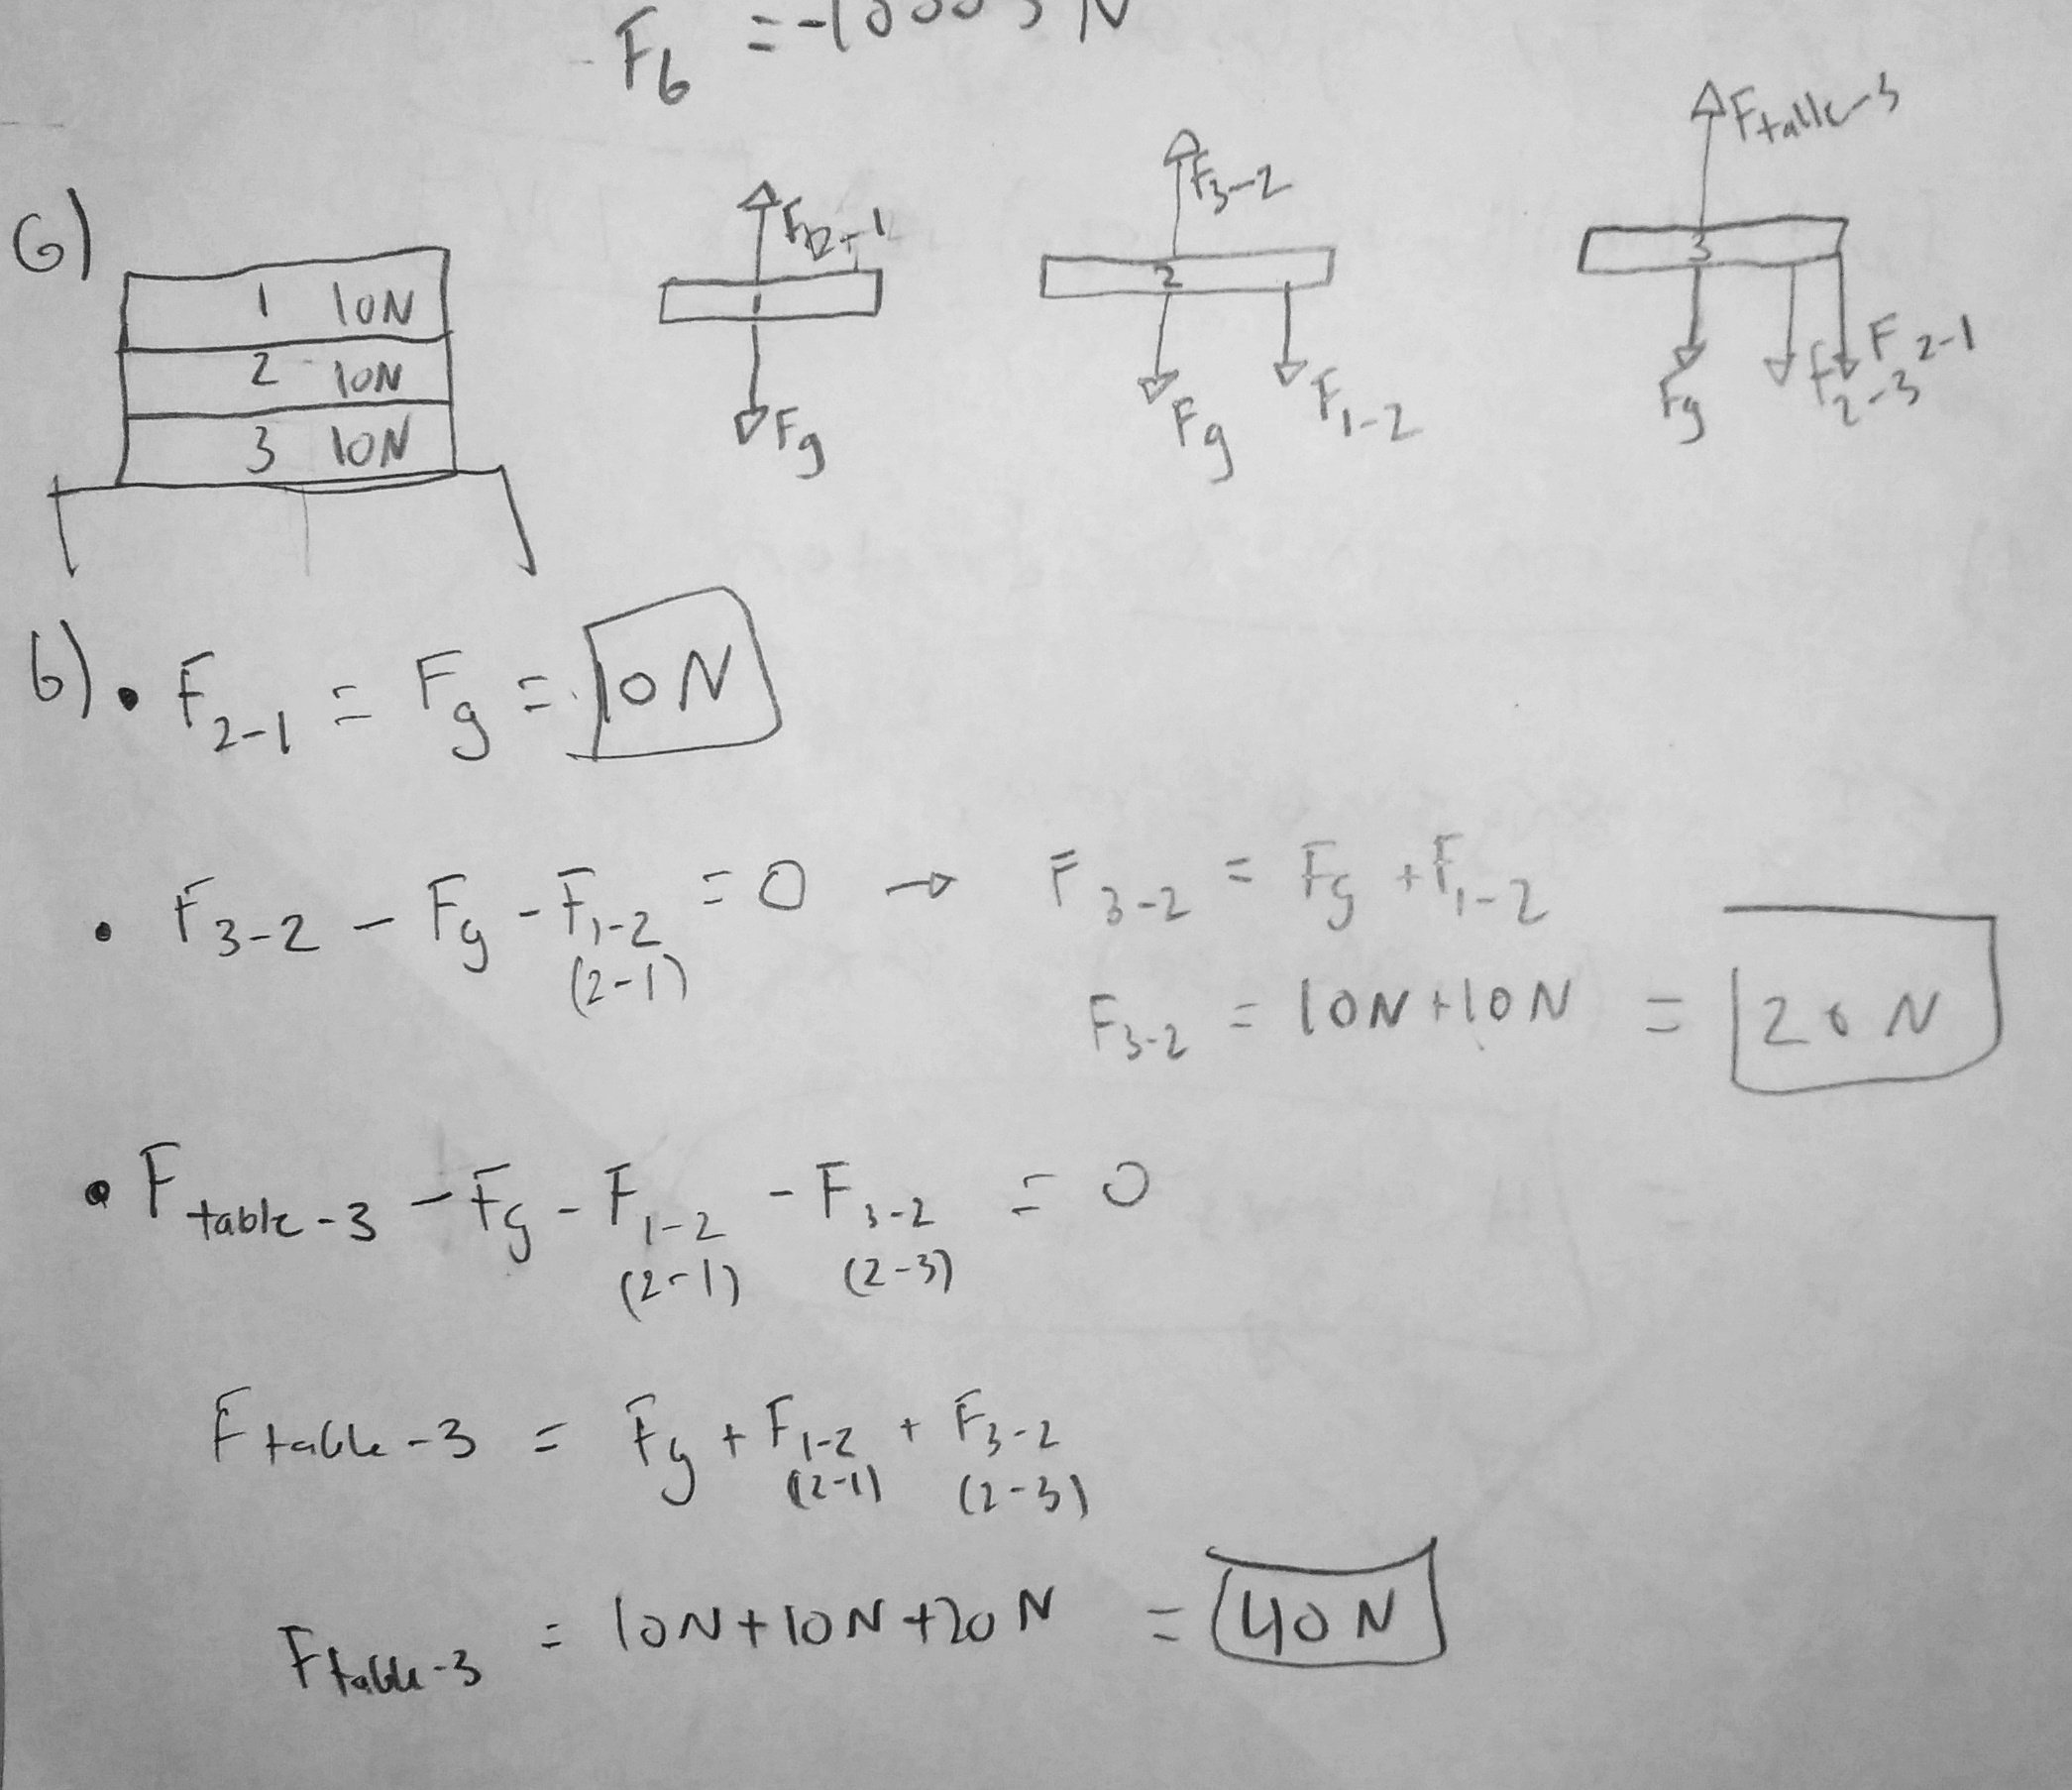 F6 =
6)
1 10N
2 10N
3 10N
Fg
F3-2
2
Fg
F1-2
Ftable-3
3
Fg
F2-3
F2-1
b) • F2-1 = Fg = 10N
• F3-2 - Fg - F1-2 = 0 → F3-2 = Fg + F1-2
(2-1)
F3-2 = 10N + 10N = 20N
• Ftable-3 - Fg - F1-2 - F3-2 = 0
(2-1) (2-3)
Ftable-3 = Fg + F1-2 + F3-2
(2-1) (2-3)
Ftable-3 = 10N + 10N + 20N = 40N